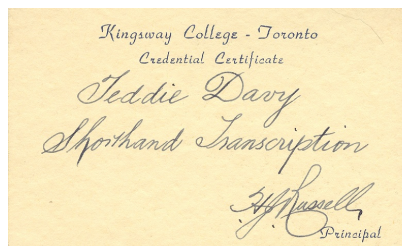 Kingsway College - Toronto
Credential Certificate
Teddie Davy
Shorthand Transcription
H.J. Russell,
Principal